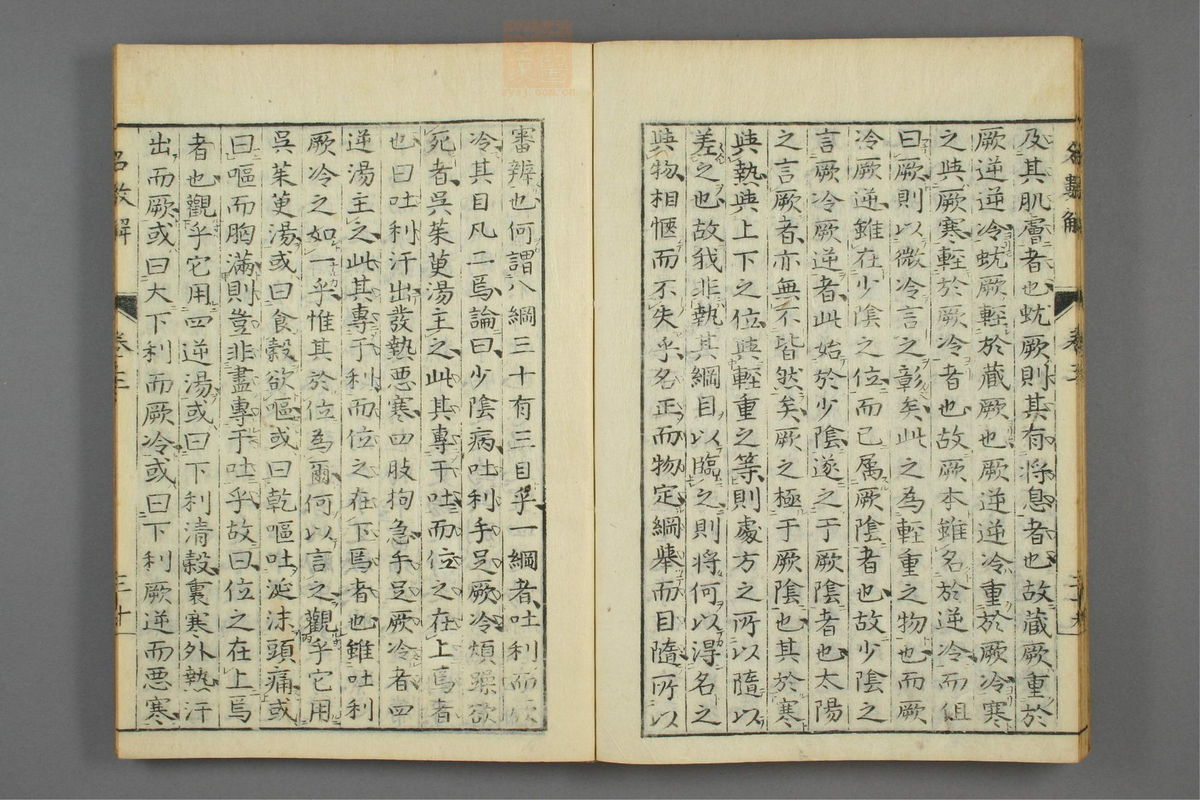 及其肌膚者也蚘厥則其有將息者也故藏厥重於
厥逆逆冷蚘厥輕於藏厥也厥逆逆冷重於厥冷寒
之與厥寒輕於厥冷者也故厥本雖名於逆冷而但
曰厥則以微冷言之彰矣此之為輕重之物也而厥
冷厥逆雖在少陰之位而已属厥陰者也故少陰之
言厥冷厥逆者此始於少陰遂之于厥陰者也太陽
之言厥者亦無不皆然矣厥之極于厥陰也其於寒
與熱與上下之位與輕重之等則處方之所以隨以
差之也故我非執其綱目以臨之則將何以得名之
與物相愜而不失乎名正而物定綱舉而目隨所以
名數解
卷五
審辨也何謂八綱三十有三目乎一綱者吐利而厥
冷其目凡二焉論曰少陰病吐利手足厥冷煩躁欲
死者吳茱萸湯主之此其專于吐而位之在上焉者
也曰吐利汗出發熱惡寒四肢拘急手足厥冷者四
逆湯主之此其專于利而位之在下焉者也雖吐利
厥冷之如一乎惟其於位為爾何以言之觀乎它用
吳茱萸湯或曰食穀欲嘔或曰乾嘔吐涎沫頭痛或
曰嘔而胸滿則豈非盡專于吐乎故曰位之在上焉
者也觀乎它用四逆湯或曰下利清穀裏寒外熱汗
出而厥或曰大下利而厥冷或曰下利厥逆而惡寒
名數解